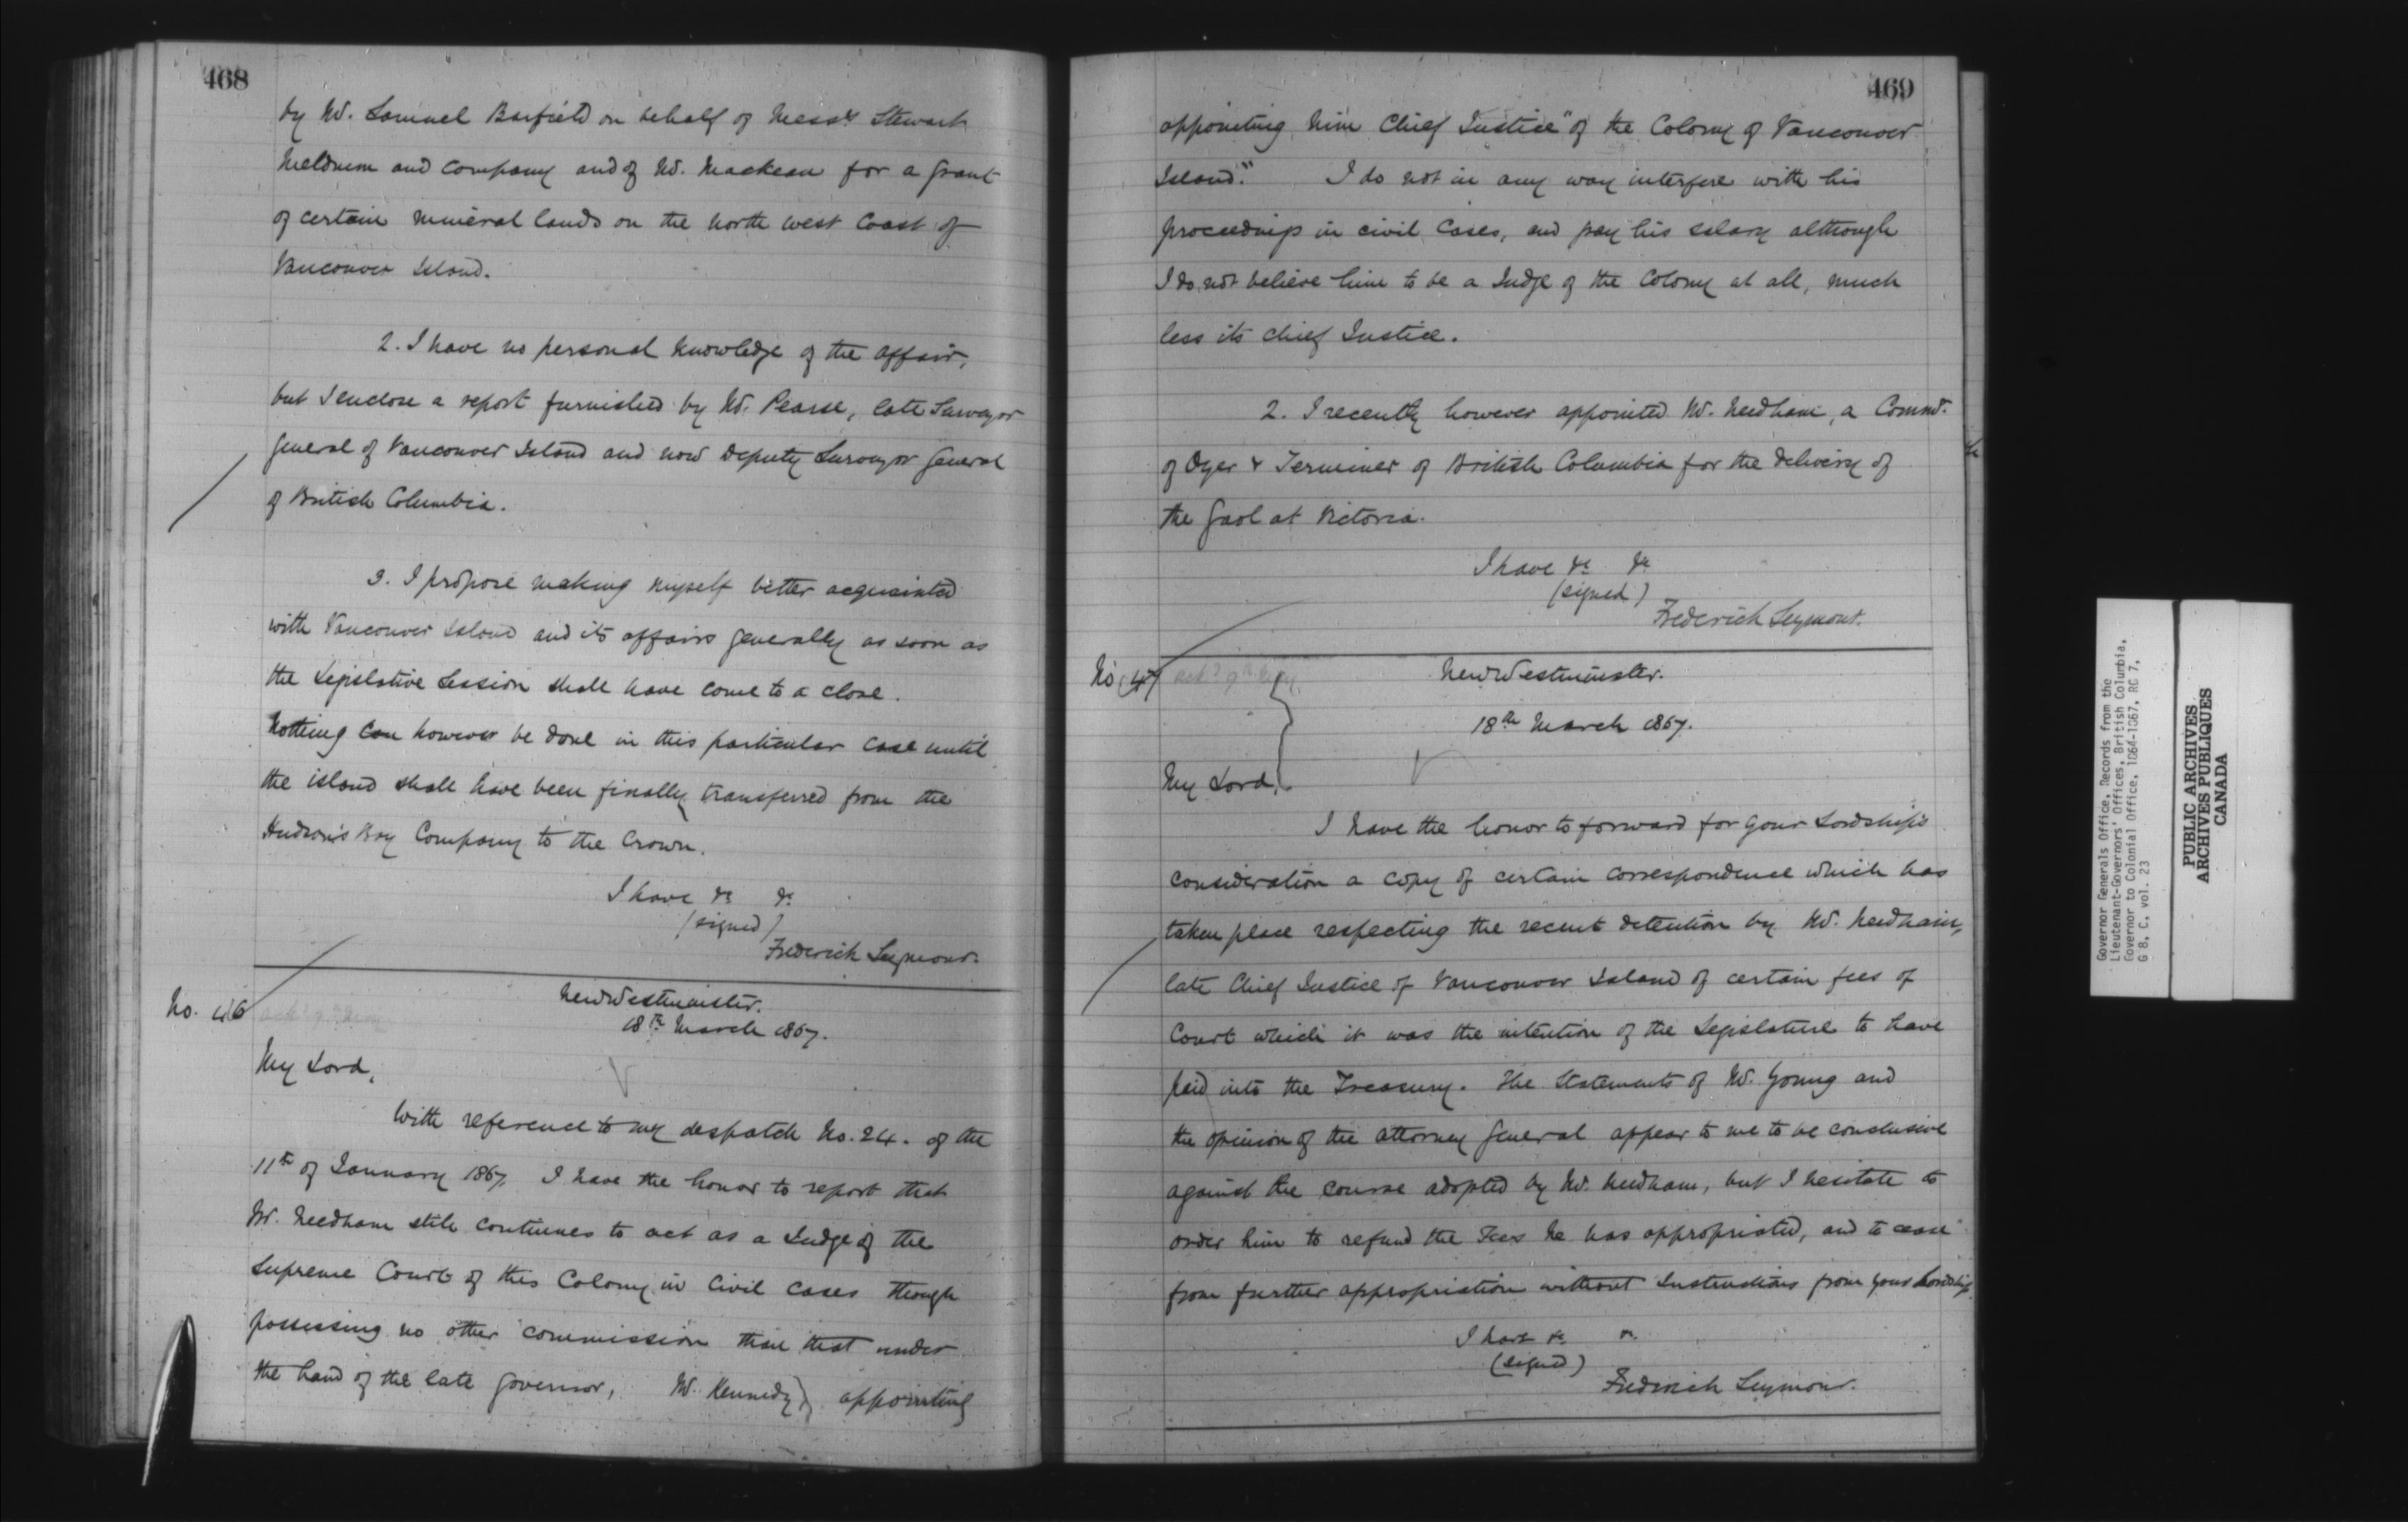 468
by Mr. Samuel Barfield on behalf of Messrs Stewart
Meldrum and Company and of Mr. Mackean for a grant
of certain mineral lands on the North West Coast of
Vancouver Island.
2. I have no personal knowledge of the affair,
but I enclose a report furnished by Mr. Pearse, late Surveyor
General of Vancouver Island and now Deputy Surveyor General
of British Columbia.
3. I propose making myself better acquainted
with Vancouver Island and its affairs generally as soon as
the Legislative Session shall have come to a close.
Nothing can however be done in this particular case until
the island shall have been finally transferred from the
Hudson's Bay Company to the Crown.
I have &c &c
(signed)
Frederick Seymour.
No. 46
New Westminster.
18th March 1867.
My Lord,
With reference to my despatch No. 24. of the
11th of January 1867, I have the honor to report that
Mr. Needham still continues to act as a Judge of the
Supreme Court of this Colony in Civil Cases though
possessing no other commission than that under
the hand of the late Governor, Mr. Kennedy, appointing
469
appointing him Chief Justice "of the Colony of Vancouver
Island." I do not in any way interfere with his
proceedings in civil Cases, and pay his salary although
I do not believe him to be a Judge of the Colony at all, much
less its Chief Justice.
2. I recently however appointed Mr. Needham, a Commr.
of Oyer & Terminer of British Columbia for the delivery of
the Gaol at Victoria.
I have &c &c
(signed)
Frederick Seymour.
No. 47
New Westminster.
18th March 1867.
My Lord,
I have the honor to forward for your Lordship's
consideration a copy of certain correspondence which has
taken place respecting the recent detention by Mr. Needham,
late Chief Justice of Vancouver Island of certain fees of
Court which it was the intention of the Legislature to have
paid into the Treasury. The Statements of Mr. Young and
the opinion of the Attorney General appear to me to be conclusive
against the course adopted by Mr. Needham, but I hesitate to
order him to refund the Fees he has appropriated, and to cease
from further appropriation without Instructions from your Lordship.
I have &c &c.
(signed)
Frederick Seymour.
Governor Generals Office, Records from the
Lieutenant-Governors' Offices, British Columbia,
Governor to Colonial Office, 1864-1867, RG 7,
G 8, C, vol. 23
PUBLIC ARCHIVES
ARCHIVES PUBLIQUES
CANADA